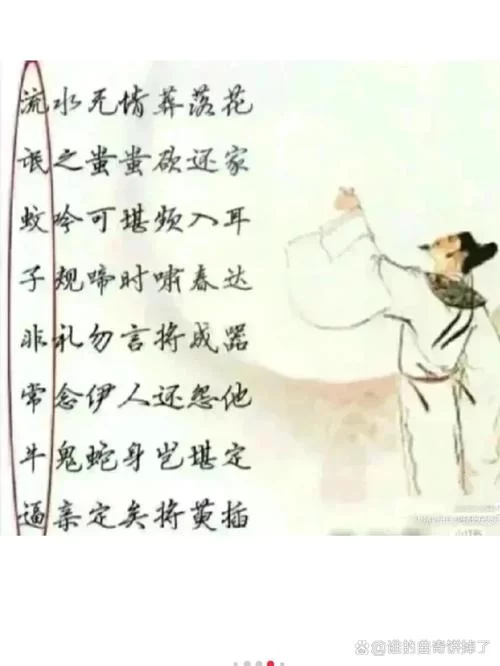 流水无情葬落花
氓之蚩蚩欲还家
蚊吟可堪频入耳
子规啼时啸春达
非礼勿言将成器
常念伊人还怨他
牛鬼蛇身岂堪定
逼亲定矣将黄插
小红书
@谁的曲奇饼掉了